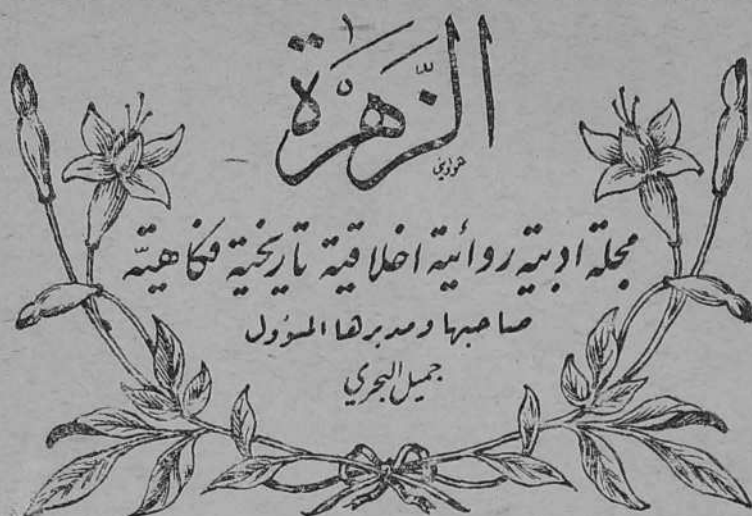 الزَّهْرَة
هواويني
مجلة ادبية روائية اخلاقية تاريخية فكاهيّة
صاحبها ومديرها المسؤول
جميل البحري